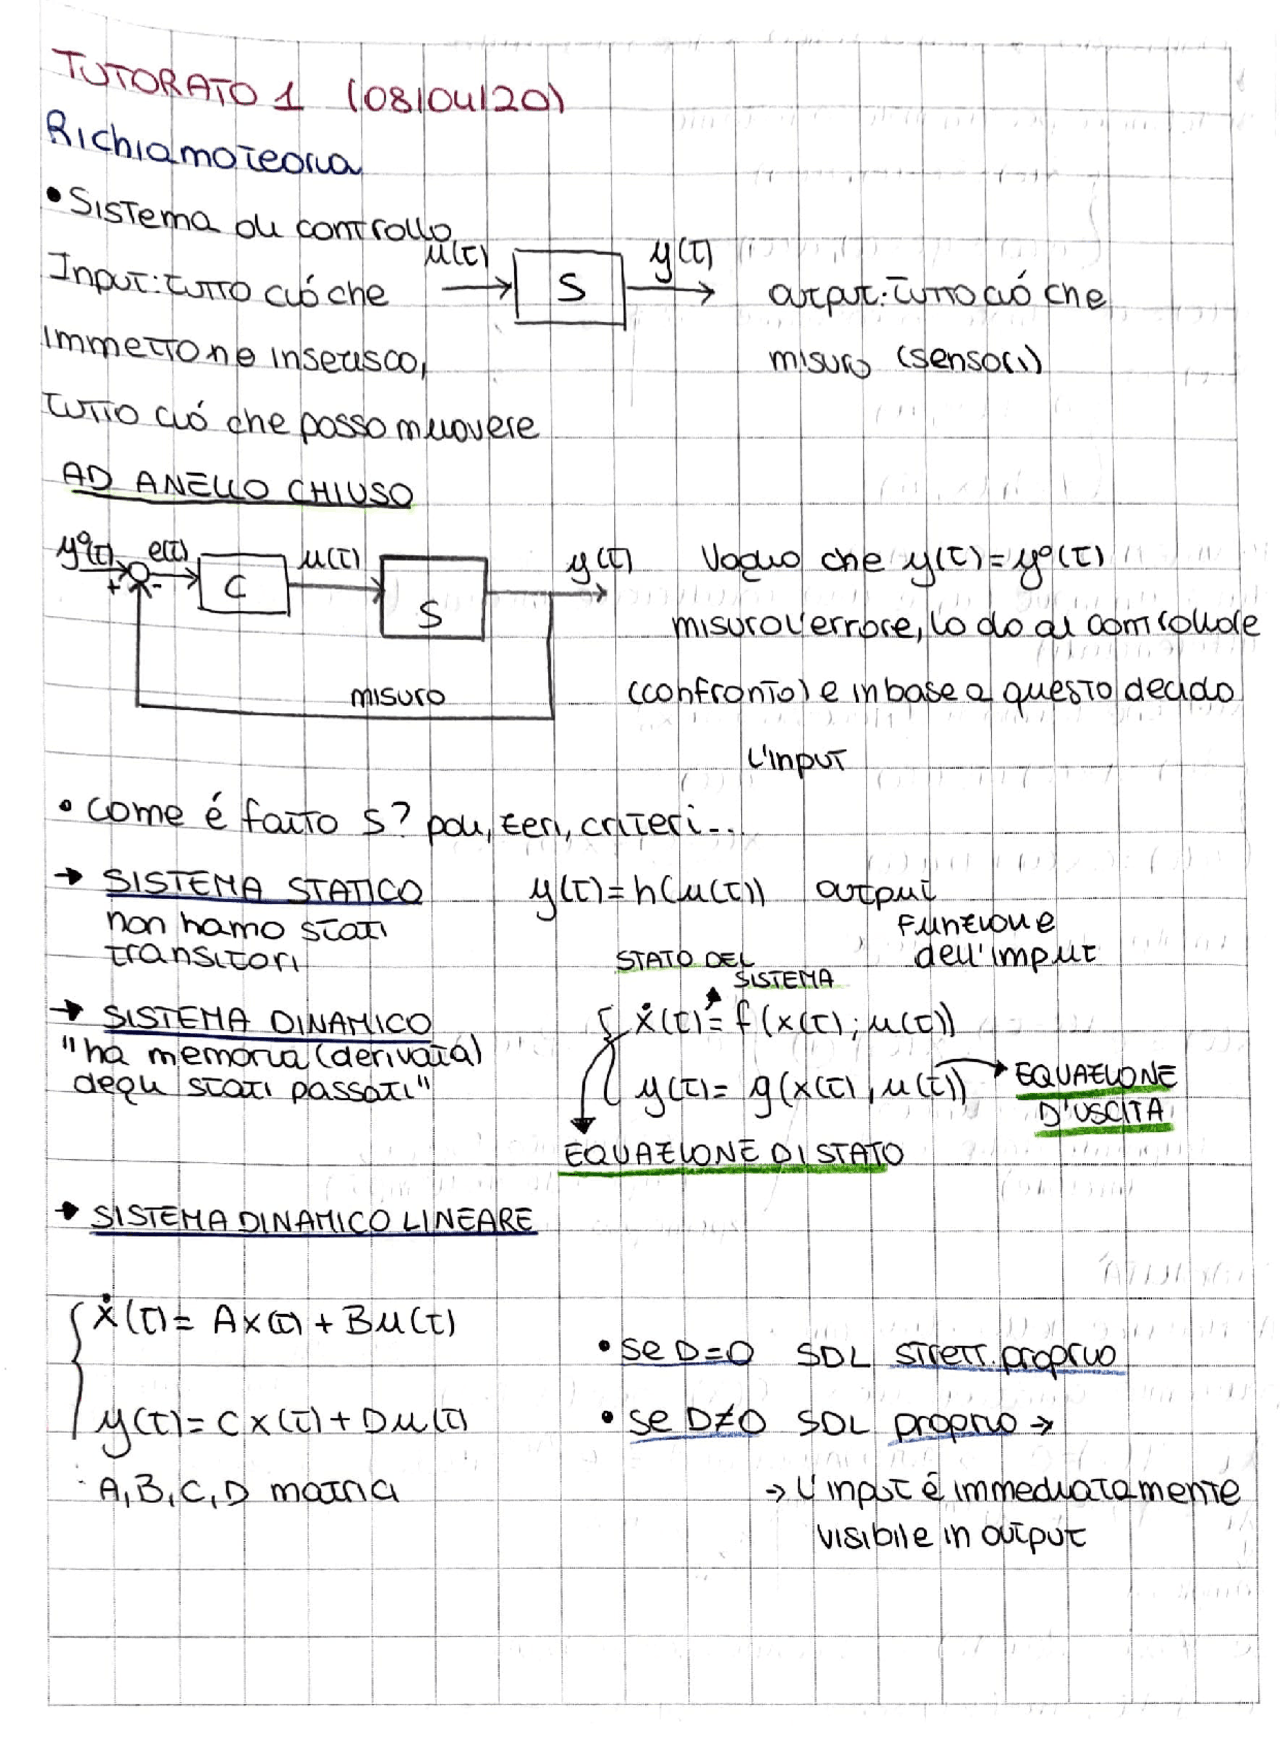 TUTORATO 1 (08/04/20)
Richiamo teoria
• Sistema di controllo
u(t) S y(t)
Input: tutto ciò che
immetto ne inserisco,
tutto ciò che posso muovere
output: tutto ciò che
misuro (sensori)
AD ANELLO CHIUSO
y°(t) e(t) C u(t) S y(t)
+ -
misuro
Voglio che y(t)=y°(t)
misuro l'errore, lo do al controllore
(confronto) e in base a questo decido
l'input
• Come é fatto S? poli, zeri, criteri...
→ SISTEMA STATICO y(t)=h(u(t)) output
funzione
dell'imput
non hanno stati
transitori
→ SISTEMA DINAMICO
"ha memoria (derivata)
degli stati passati"
STATO DEL
SISTEMA
ẋ(t)= f(x(t); u(t))
y(t)= g(x(t), u(t)) → EQUAZIONE
D'USCITA
EQUAZIONE DI STATO
→ SISTEMA DINAMICO LINEARE
ẋ(t)= Ax(t) + Bu(t)
y(t)= Cx(t) + Du(t)
A, B, C, D matrici
• se D=0 SDL strett. proprio
• se D≠0 SDL proprio →
→ l'input é immediatamente
visibile in output